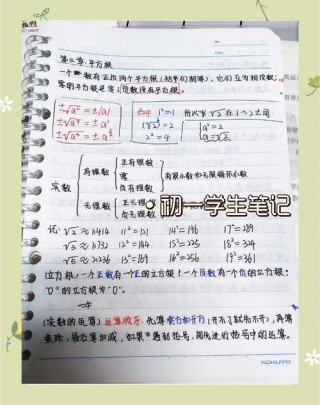 第二章:平方根
一个正数有正负两个平方根(他们相等),它们互为相反数;
零的平方根是零;负数没有平方根。
±√a² = ±|a|
±√a⁴ = ±a²
±√a⁶ = ±a³
1² = 1
(√2)² = 2
2² = 4
所以√2在1~2之间
a² = 2
a = ±√2
实数
有理数
正有理数
零
负有理数
有限小数和无限循环小数
无理数
正无理数
负无理数
初一学生笔记
记:
√2 ≈ 1.414 11² = 121 14² = 196 17² = 289
√3 ≈ 1.732 12² = 144 15² = 225 18² = 324
√5 ≈ 2.236 13² = 169 16² = 256 19² = 361
立方根:一个正数有一个正的立方根!一个负数有一个负的立方根:
"0"的立方根为"0"。
(实数的运算)运算顺序:先算乘方和开方(开不了就先不开),再算
乘除,最后算加减,如果遇到括号,则先进行括号中的运算。
KOKUYO